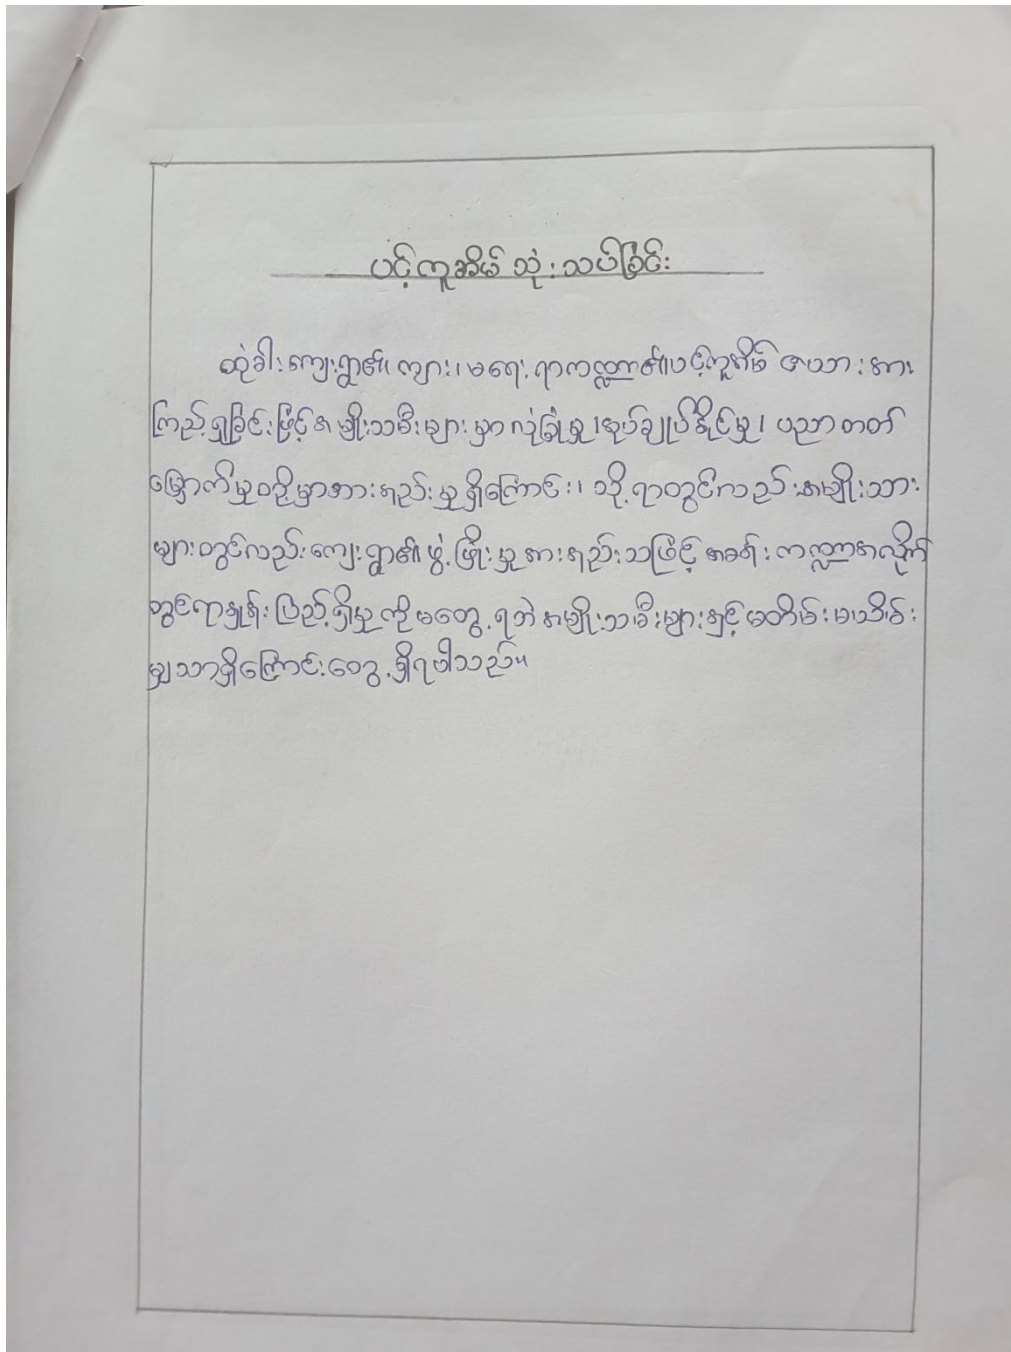 ပင့်ကူအိမ် သုံးသပ်ခြင်း
ထုံခါးကျေးရွာ၏ ကျား၊ မရေးရာကဏ္ဍာ၏ပင့်ကူအိမ် ဇယားအား
ကြည့်ရှုခြင်းဖြင့်အမျိုးသမီးများမှာ လုံခြုံမှု၊ အုပ်ချုပ်နိုင်မှု၊ ပညာတတ်
မြောက်မှုစဉ်မှာအားနည်းမှုရှိကြောင်း၊ သို့ရာတွင်လည်းအမျိုးသား
များတွင်လည်းကျေးရွာ၏ဖွံ့ဖြိုးမှုအားနည်းသဖြင့် အခန်းကဏ္ဍာအလိုက်
တွင်ရာနှုန်းပြည့်ရှိမှုကိုမတွေ့ရဘဲအမျိုးသမီးများနှင့်မတိမ်းမယိမ်း
မျှသာရှိကြောင်းတွေ့ရှိရပါသည်။